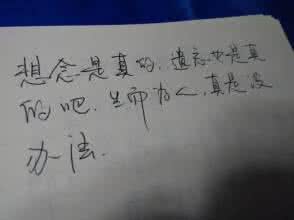 想念是真的.遗忘也是真
的吧.生而为人,真是没
办法.